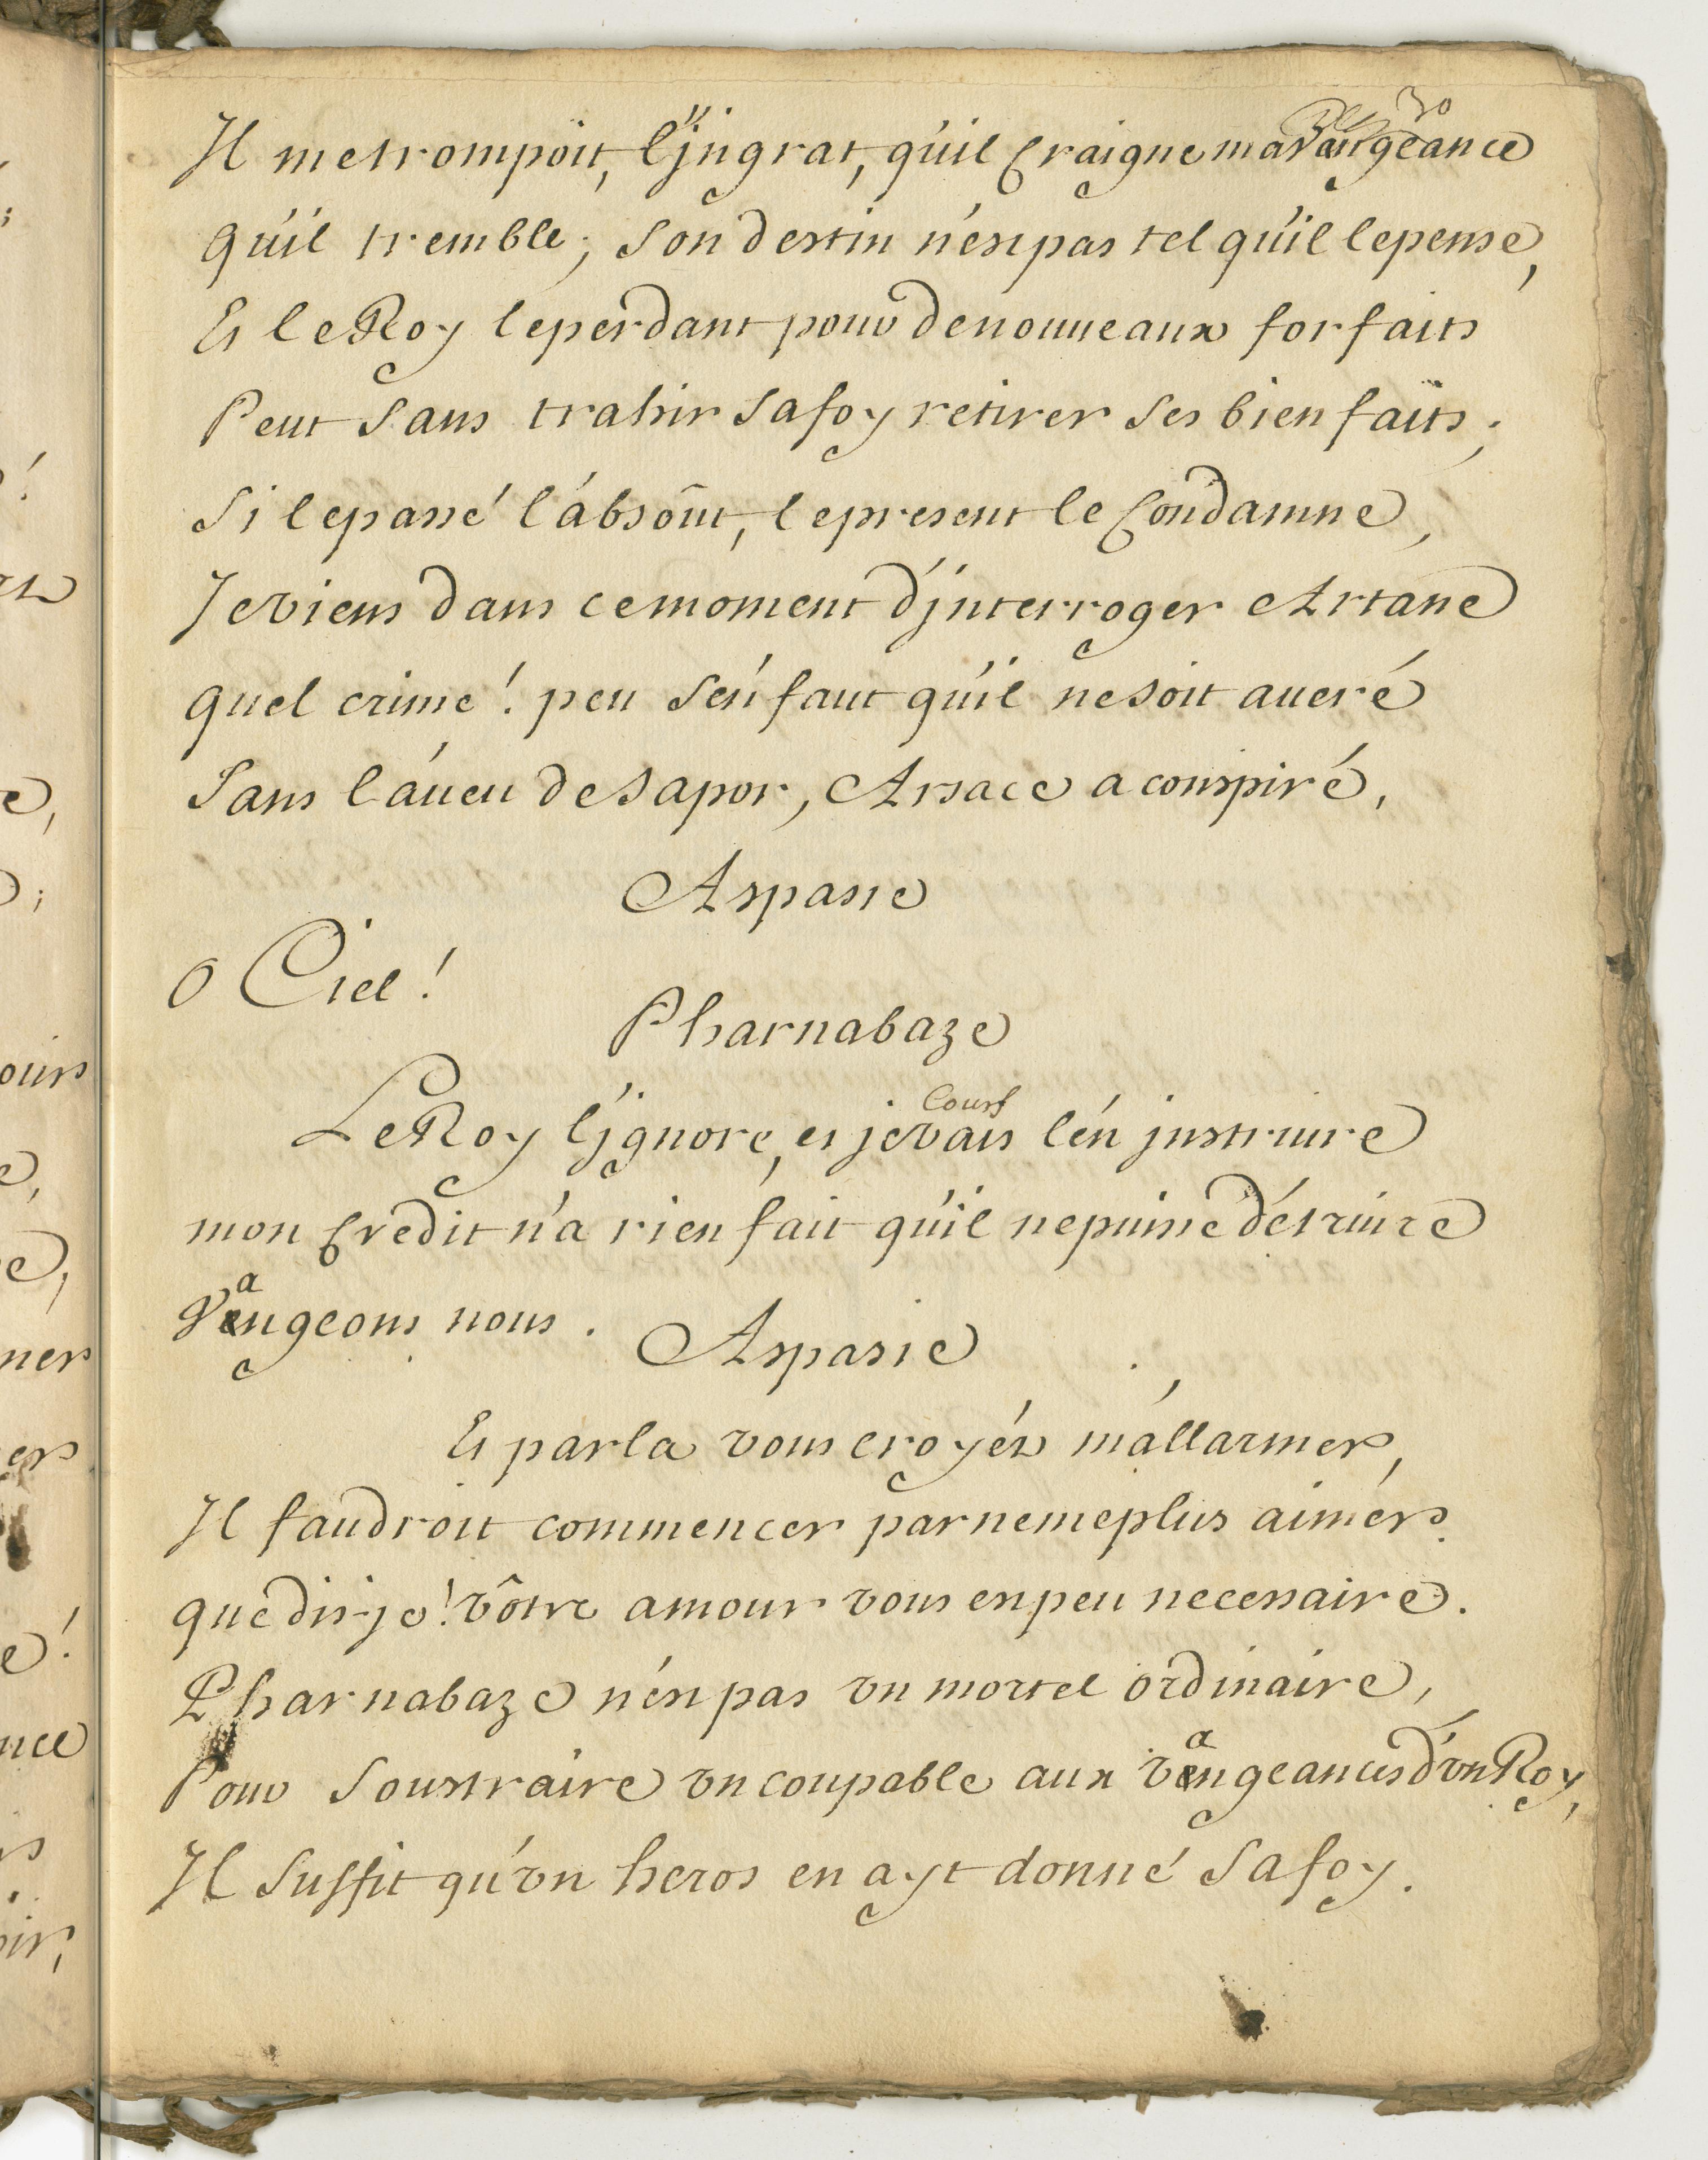 30
Il me trompoit, l'jngrat, qu'il Craigne ma Vangeance
qu'il tremble; Son destin n'est pas tel qu'il le pense,
Et le Roy le perdant pour de nouueaux forfaits
Peut Sans trahir Sa foy retirer Ses bien faits;
Si le passé l'absôut, le present le Condamne,
Je viens dans ce moment d'jnterroger Artane
quel crime! peu S'en faut qu'il ne soit aueré
Sans l'aueu de Sapor, Arsace a conspiré,
Aspasie
O Ciel!
Pharnabaze
Le Roy l'jgnore, et je vais l'en jnstruire
Cours
mon Credit n'a rien fait qu'il ne puisse détruire
Vangeons nous.
Aspasie
Et par la vous croyés m'allarmer,
Il faudroit commencer par ne me plus aimer.
que dis-je! vôtre amour vous est peu necessaire.
Pharnabaze n'est pas vn mortel ordinaire,
Pour Soustraire vn coupable aux vangeances d'vn Roy,
Il Suffit qu'vn heros en ayt donné Sa foy.